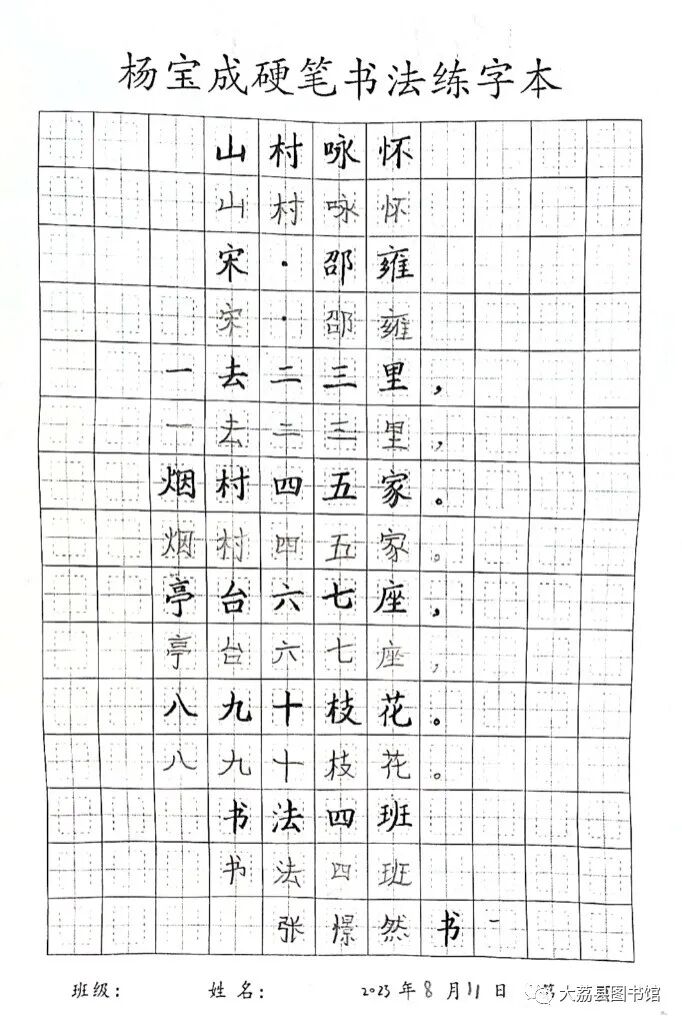 杨宝成硬笔书法练字本
山村咏怀
山村咏怀
宋·邵雍
宋·邵雍
一去二三里，
一去二三里，
烟村四五家。
烟村四五家。
亭台六七座，
亭台六七座，
八九十枝花。
八九十枝花。
书法四班
书法四班
张憬然书
班级： 姓名： 2023年8月11日 第
大荔县图书馆